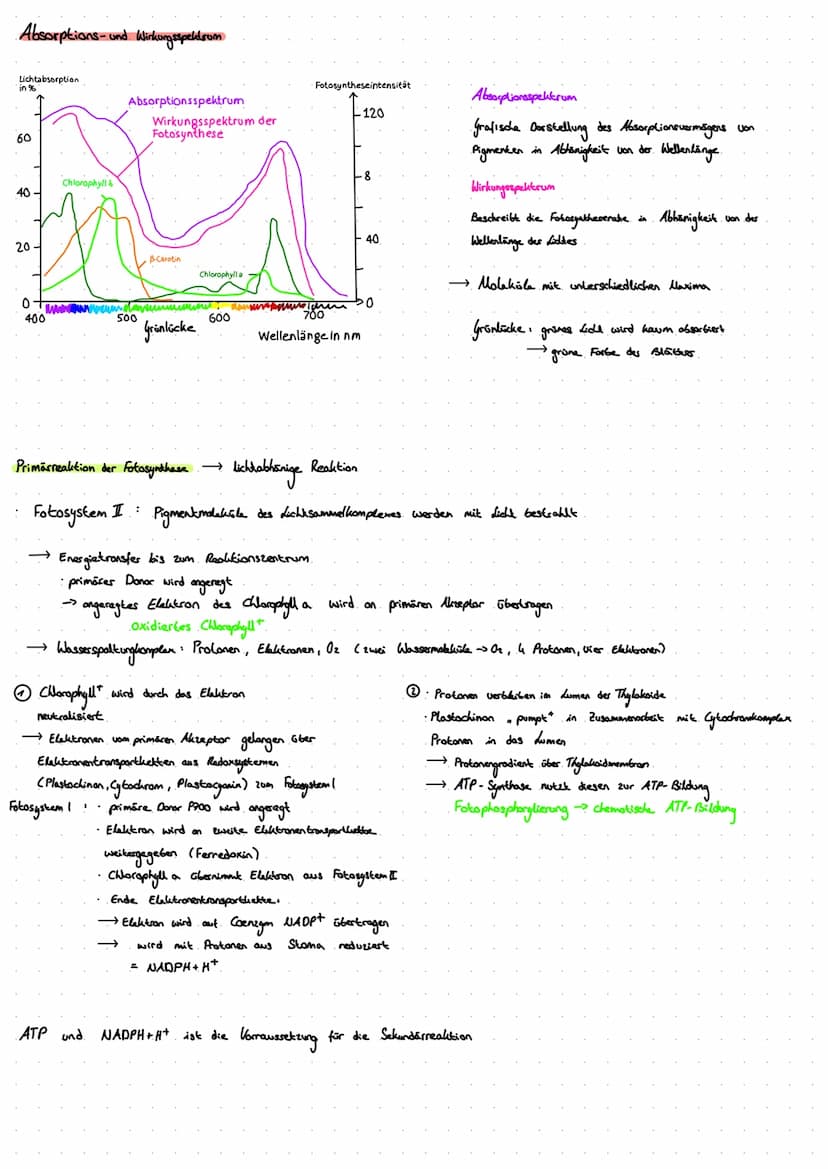 Absorptions- und Wirkungsspektrum
Lichtabsorption
in %
Fotosyntheseintensität
Absorptionsspektrum
Wirkungsspektrum der
Fotosynthese
120
60
8
Chlorophyll b
40
40
20
β-Carotin
Chlorophyll a
0
0
400
500
600
700
Grünlücke
Wellenlänge in nm
Absorptionsspektrum
Grafische Darstellung des Absorptionsvermögens von
Pigmenten in Abhänigkeit von der Wellenlänge.
Wirkungsspektrum
Beschreibt die Fotosyntheserate in Abhänigkeit von der
Wellenlänge des Lichtes
→ Moleküle mit unterschiedlichen Maxima
Grünlücke: grünes Licht wird kaum absorbiert
→ grüne Farbe des Blattes
Primärreaktion der Fotosynthese → lichtabhänige Reaktion
· Fotosystem II : Pigmentmoleküle des Lichtsammelkomplexes werden mit Licht bestrahlt
→ Energietransfer bis zum Reaktionszentrum
· primärer Donor wird angeregt
→ angeregtes Elektron des Chlorophyll a wird an primären Akzeptor übertragen
oxidiertes Chlorophyll⁺
→ Wasserspaltungkomplex: Protonen, Elektronen, O₂ (zwei Wassermoleküle → O₂, 4 Protonen, vier Elektronen)
① Chlorophyll⁺ wird durch das Elektron
neutralisiert
→ Elektronen vom primären Akzeptor gelangen über
Elektronentransportketten aus Redoxsystemen
(Plastochinon, Cytochrom, Plastocyanin) zum Fotosystem I
Fotosystem I : · primäre Donor P700 wird angeregt
· Elektron wird an zweite Elektronentransportkette
weitergegeben (Ferredoxin)
· Chlorophyll a übernimmt Elektron aus Fotosystem II
· Ende Elektronentransportkette:
→ Elektron wird auf Coenzym NADP⁺ übertragen
→ wird mit Protonen aus Stoma reduziert
= NADPH + H⁺
② · Protonen verbleiben im Lumen der Thylakoide
· Plastochinon "pumpt" in Zusammenarbeit mit Cytochromkomplex
Protonen in das Lumen
→ Protonengradient über Thylakoidmembran
→ ATP-Synthase nutzt diesen zur ATP-Bildung
Fotophosphorylierung → chemotische ATP-Bildung
ATP und NADPH + H⁺ ist die Vorraussetzung für die Sekundärreaktion